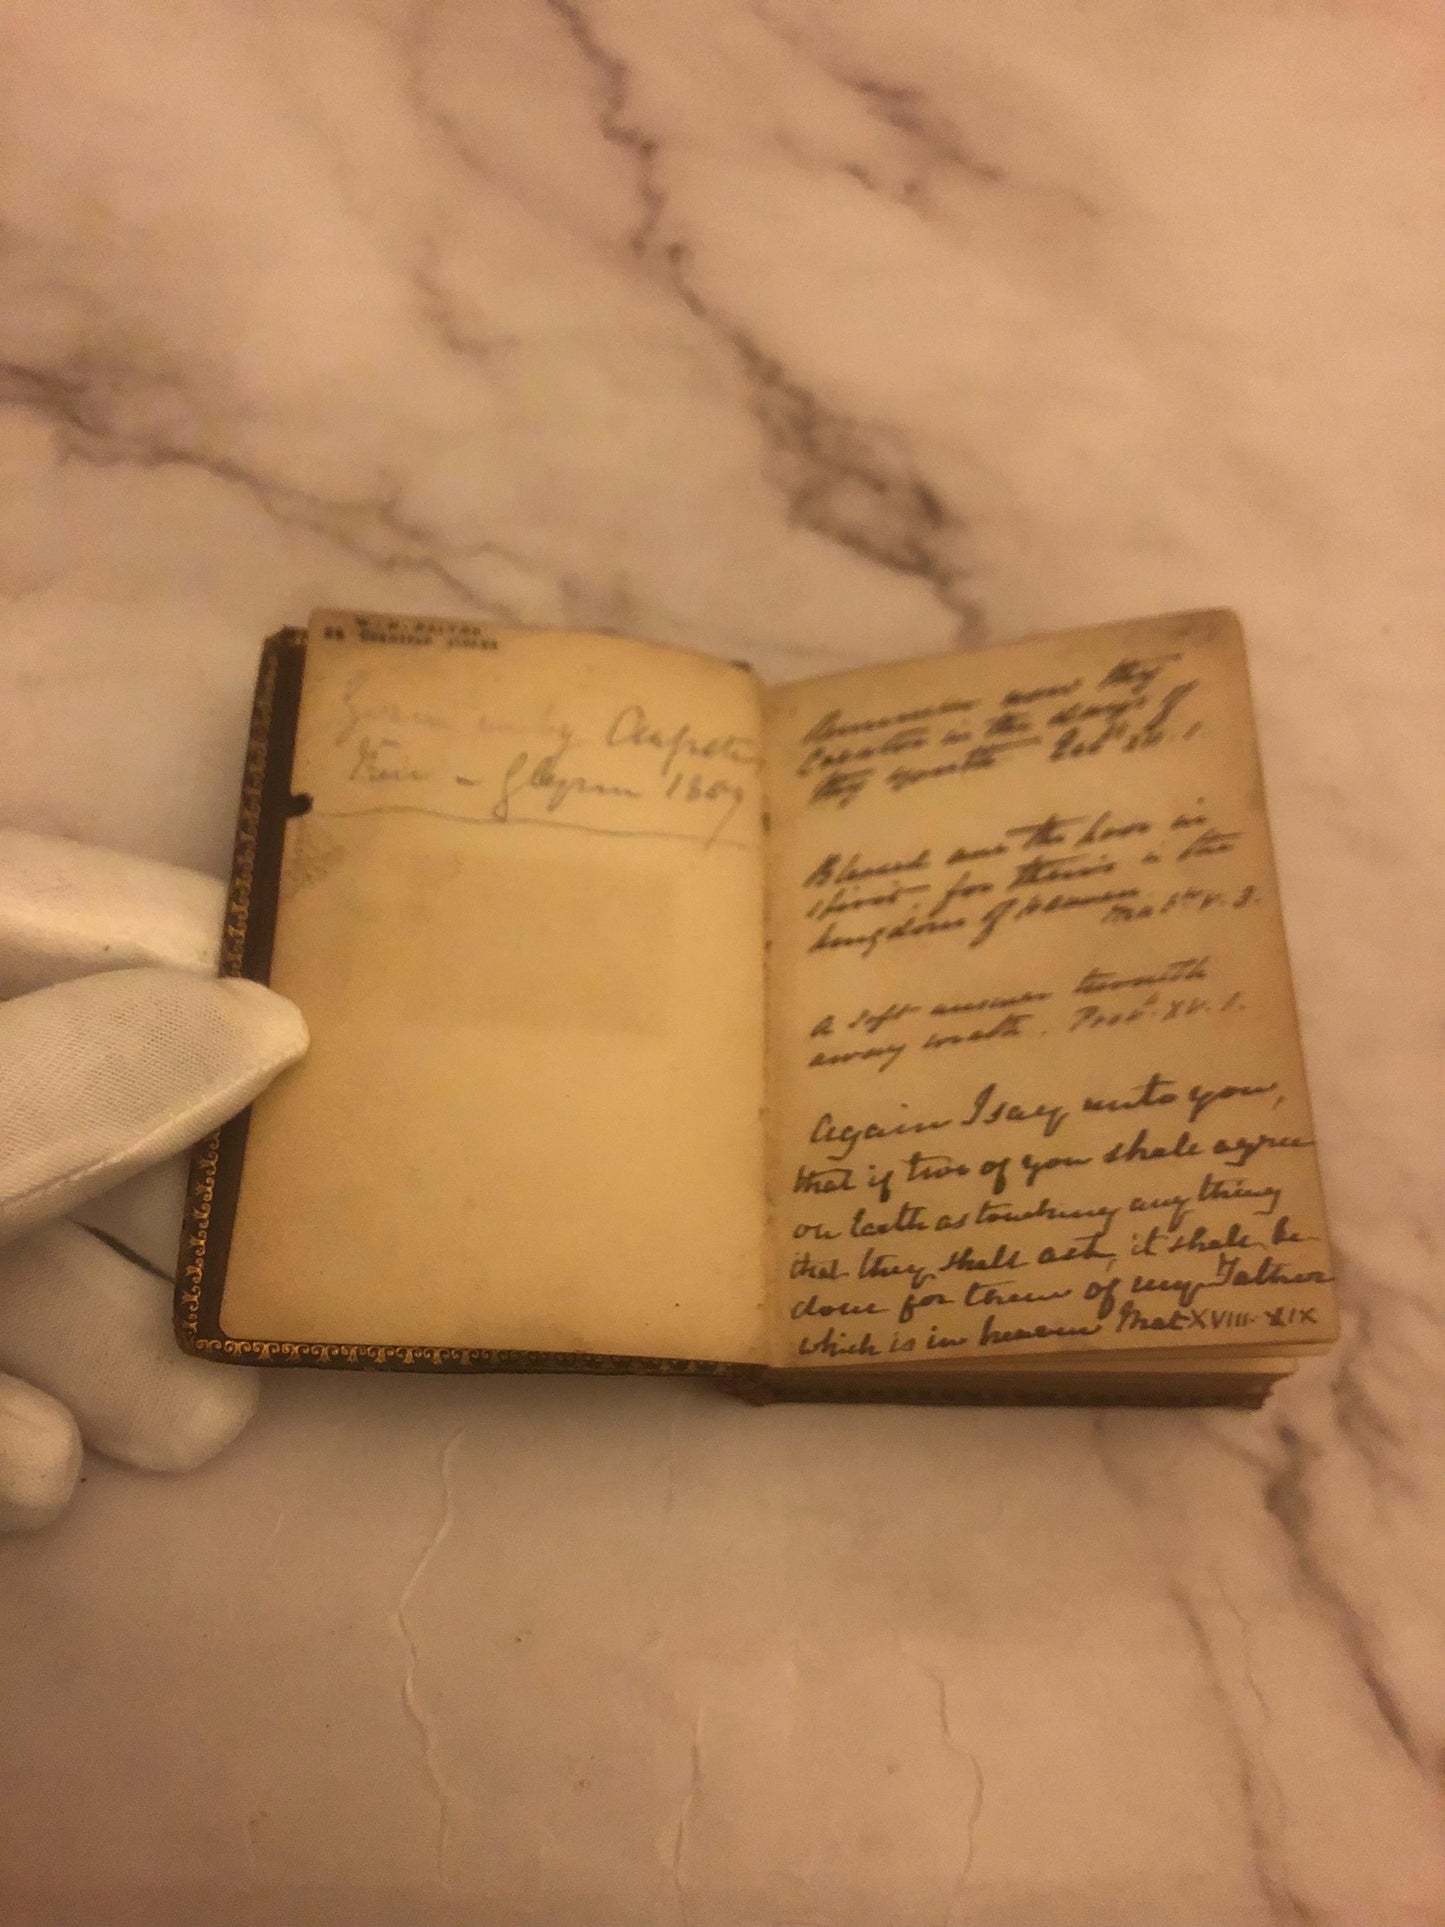 28 COCKSPUR STREET
Given me by Augusta
- Gleynn 1859
Remember now thy
Creator in the days of
thy youth Ecc XII. 1.
Blessed are the poor in
spirit, for theirs is the
kingdom of Heaven
Matw V. 3.
A soft answer turneth
away wrath. Provb. XV. 1.
Again I say unto you,
that if two of you shall agree
on Earth as touching any thing
that they shall ask, it shall be
done for them of my Father
which is in heaven Mat XVIII. XIX